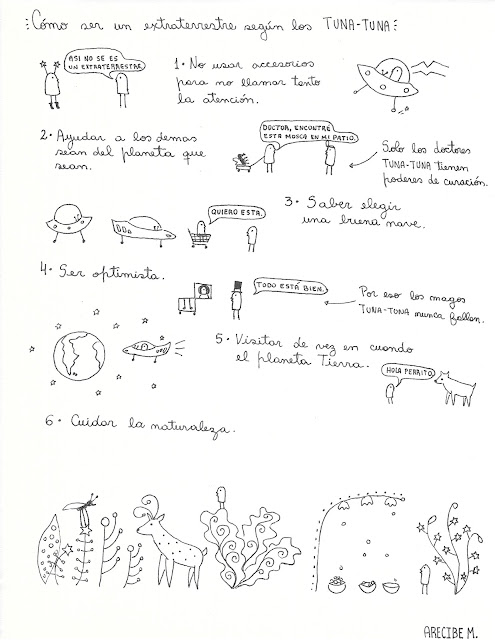 Cómo ser un extraterrestre según los TUNA-TUNA:
ASI NO SE ES
UN EXTRATERRESTRE.
1• No usar accesorios
para no llamar tanto
la atención.
2• Ayudar a los demas
sean del planeta que
sean.
DOCTOR, ENCONTRE
ESTA MOSCA EN MI PATIO.
Solo los doctores
TUNA-TUNA tienen
poderes de curación.
QUIERO ESTA.
3• Saber elegir
una buena nave.
4• Ser optimista.
TODO ESTÁ BIEN.
Por eso los magos
TUNA-TUNA nunca fallan.
5• Visitar de vez en cuando
el planeta Tierra.
HOLA PERRITO.
6• Cuidar la naturaleza.
ARECIBE M.